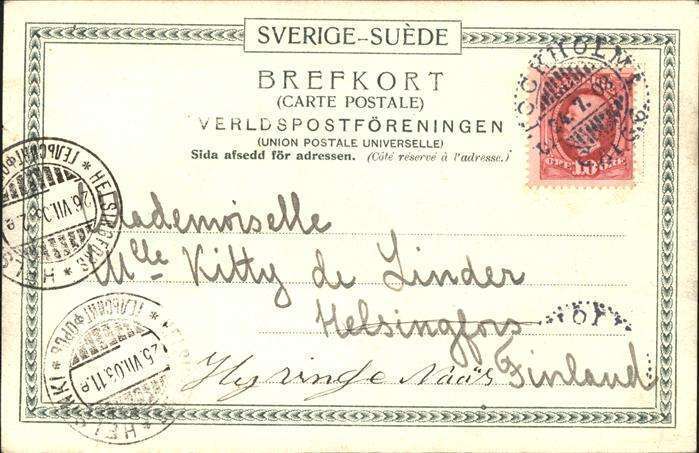 SVERIGE-SUÈDE
BREFKORT
(CARTE POSTALE)
VERLDSPOSTFÖRENINGEN
(UNION POSTALE UNIVERSELLE)
Sida afsedd för adressen. (Côté réservé à l'adresse.)
STOCKHOLM
24.7.03
10 ÖRE
HELSINGFORS * ГЕЛЬСИНГФОРСЪ * HELSINKI
26.VII.03
Mademoiselle
Mlle Kitty de Linder
Helsingfors
Finland
ГЕЛЬСИНГФОРСЪ * HELSINKI *
25.VII.03.11